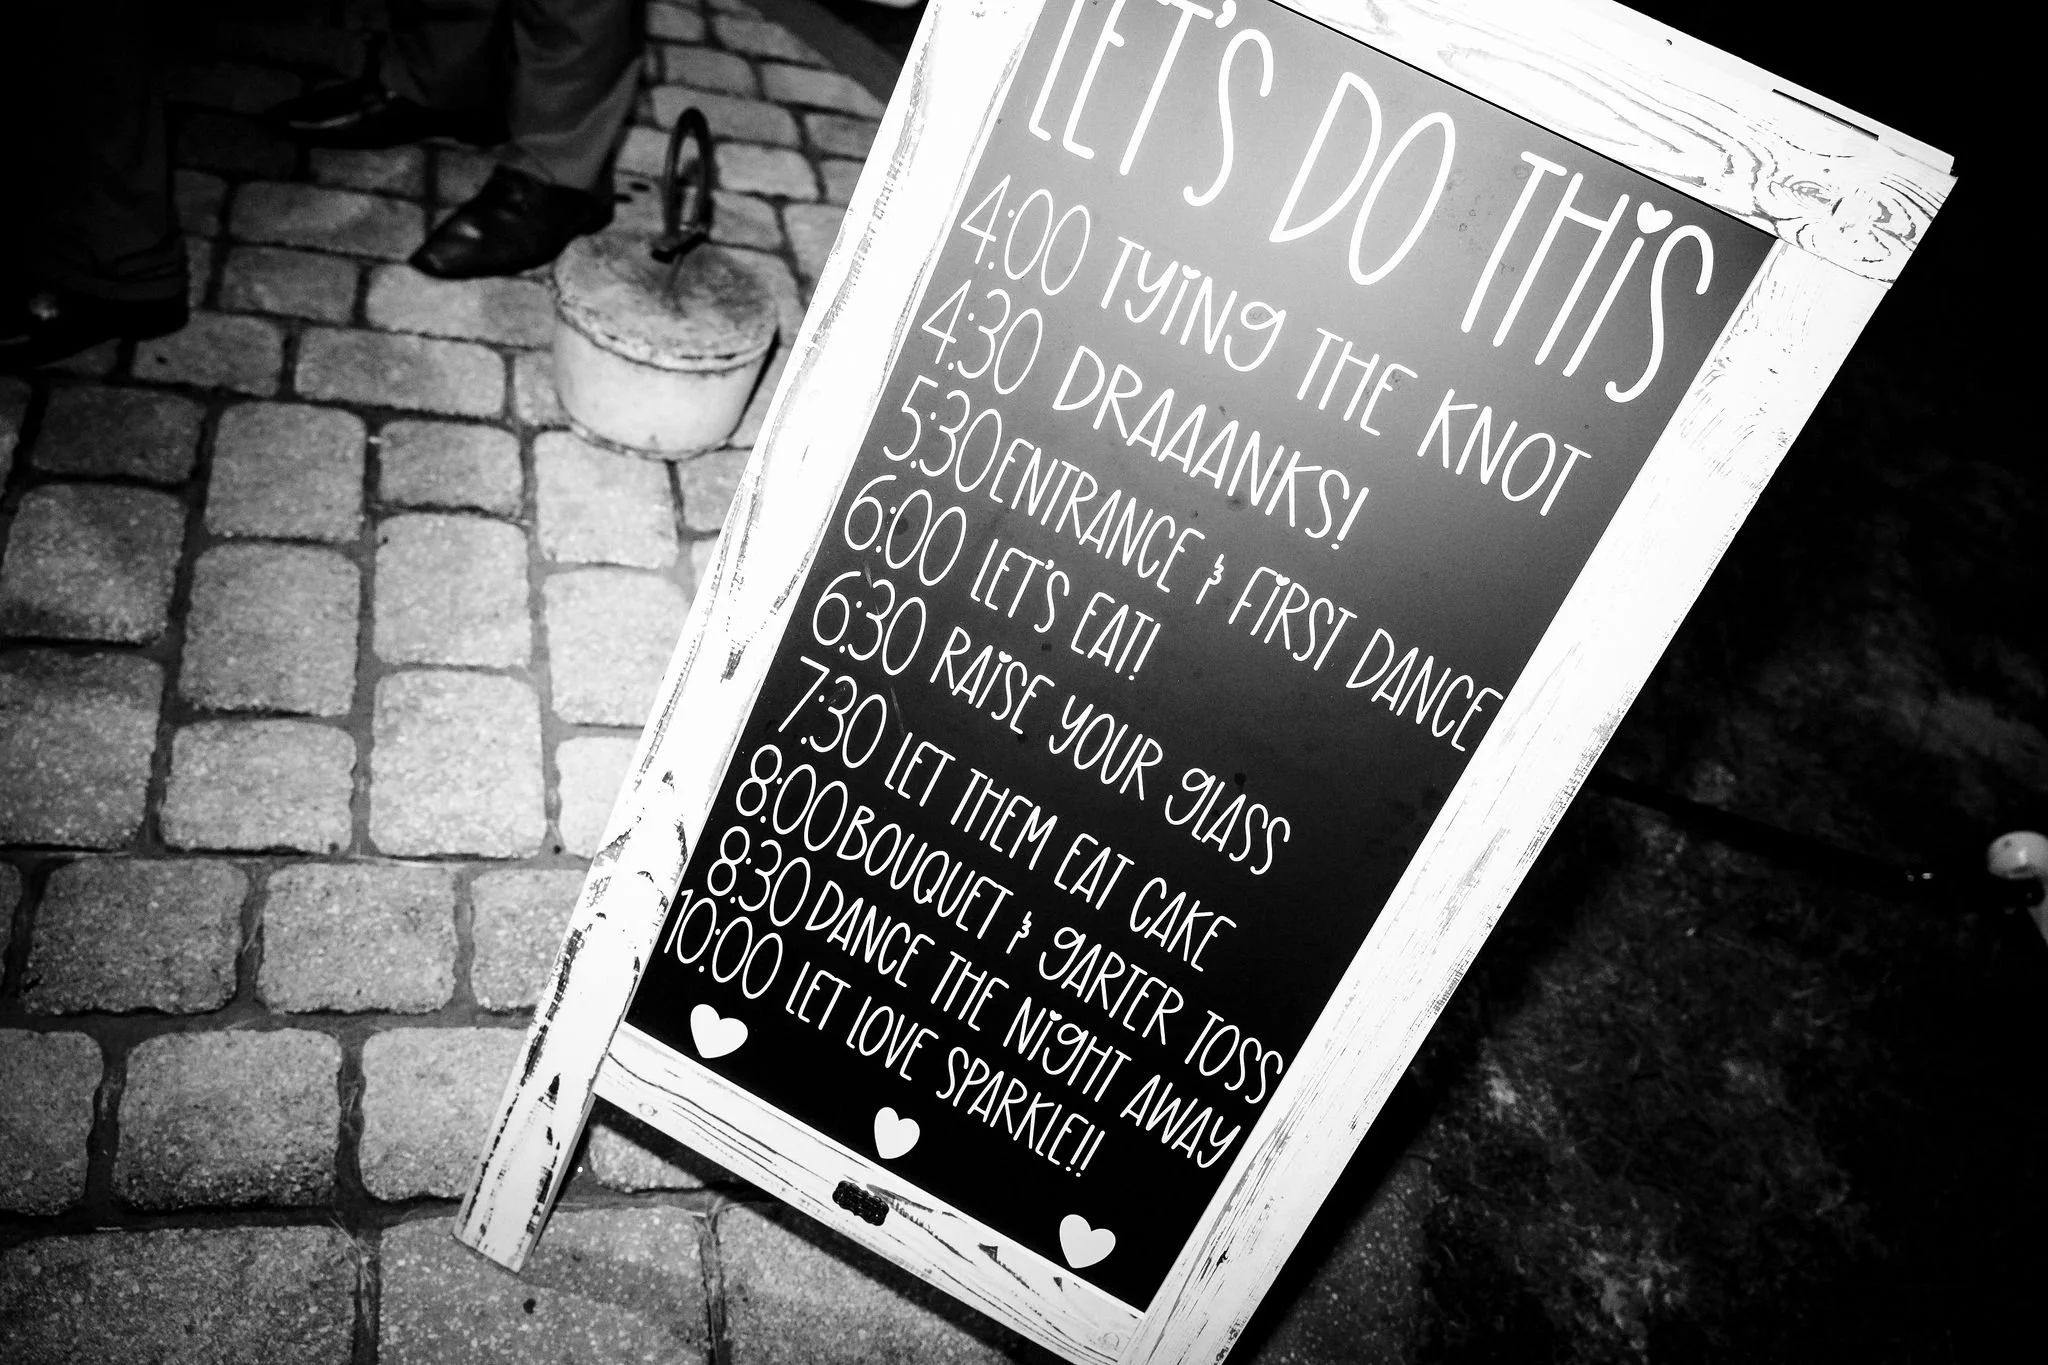 LET'S DO THiS
4:00 TYiNG THE KNOT
4:30 DRAAANKS!
5:30 ENTRANCE & FiRST DANCE
6:00 LET'S EAT!
6:30 RAiSE YOUR GLASS
7:30 LET THEM EAT CAKE
8:00 BOUQUET & GARTER TOSS
8:30 DANCE THE NiGHT AWAY
10:00 LET LOVE SPARKLE!!